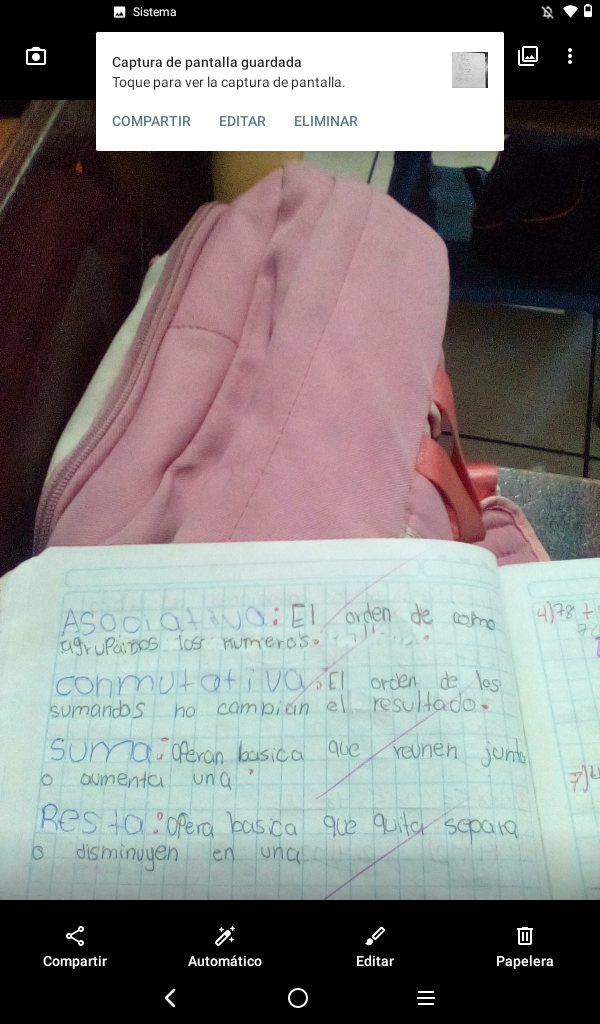 Sistema
Captura de pantalla guardada
Toque para ver la captura de pantalla.
COMPARTIR EDITAR ELIMINAR
Asociativa: El orden de como
agrupamos los numeros.
conmutativa: El orden de los
sumandos no cambian el resultado.
SUMA: Operan basica que reunen junta
o aumenta una
Resta: Opera basica que quita separa
o disminuyen en una
4) 78 +
7)
Compartir Automático Editar Papelera